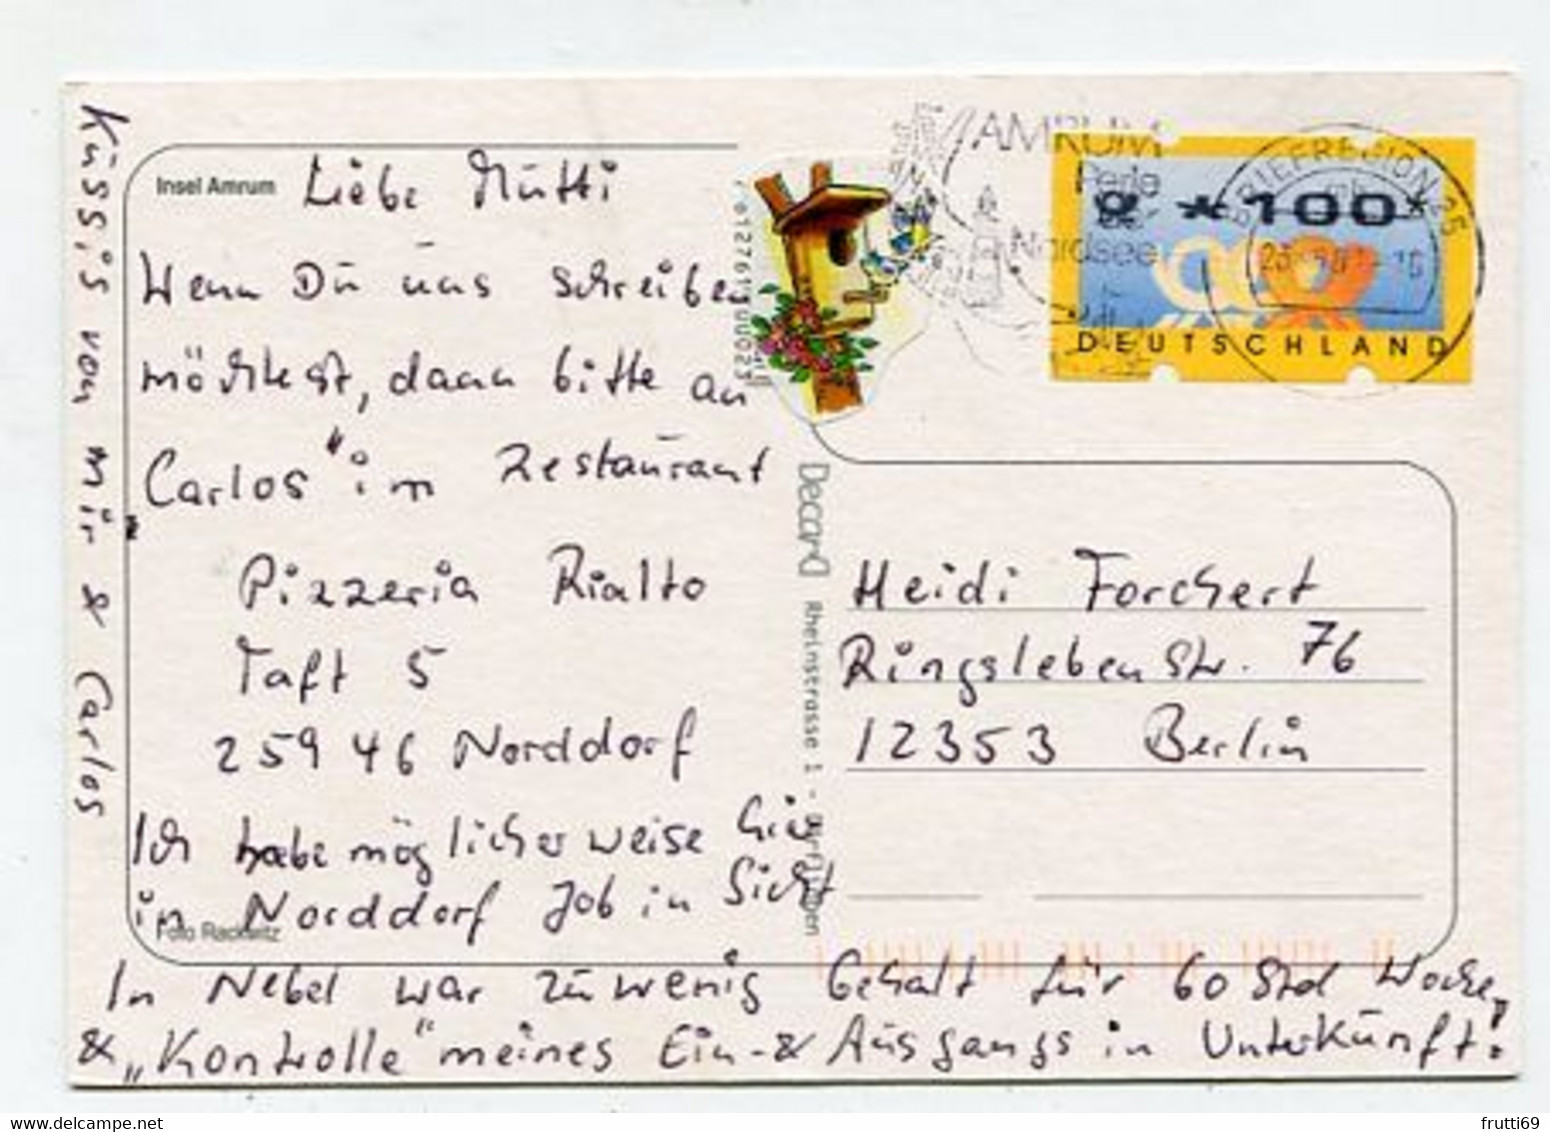 Insel Amrum
Liebe Mutti
Wenn Du uns schreiben
möchtest, dann bitte an
„Carlos“ im Restaurant
Pizzeria Rialto
Taft 5
25946 Norddorf
Ich habe möglicherweise hier
in Norddorf Job in Sicht
Foto Rackwitz
In Nebel war zu wenig Gehalt für 60 Std Woche,
& „Kontrolle“ meines Ein-& Ausgangs in Unterkunft!
Küss,is von mir & Carlos
Deccard
Rheinstrasse 1 -
AMRUM
Perle
der
Nordsee
*100*
DEUTSCHLAND
BRIEFREGION 25
Heidi Forchert
Ringslebenstr. 76
12353 Berlin
frutti69